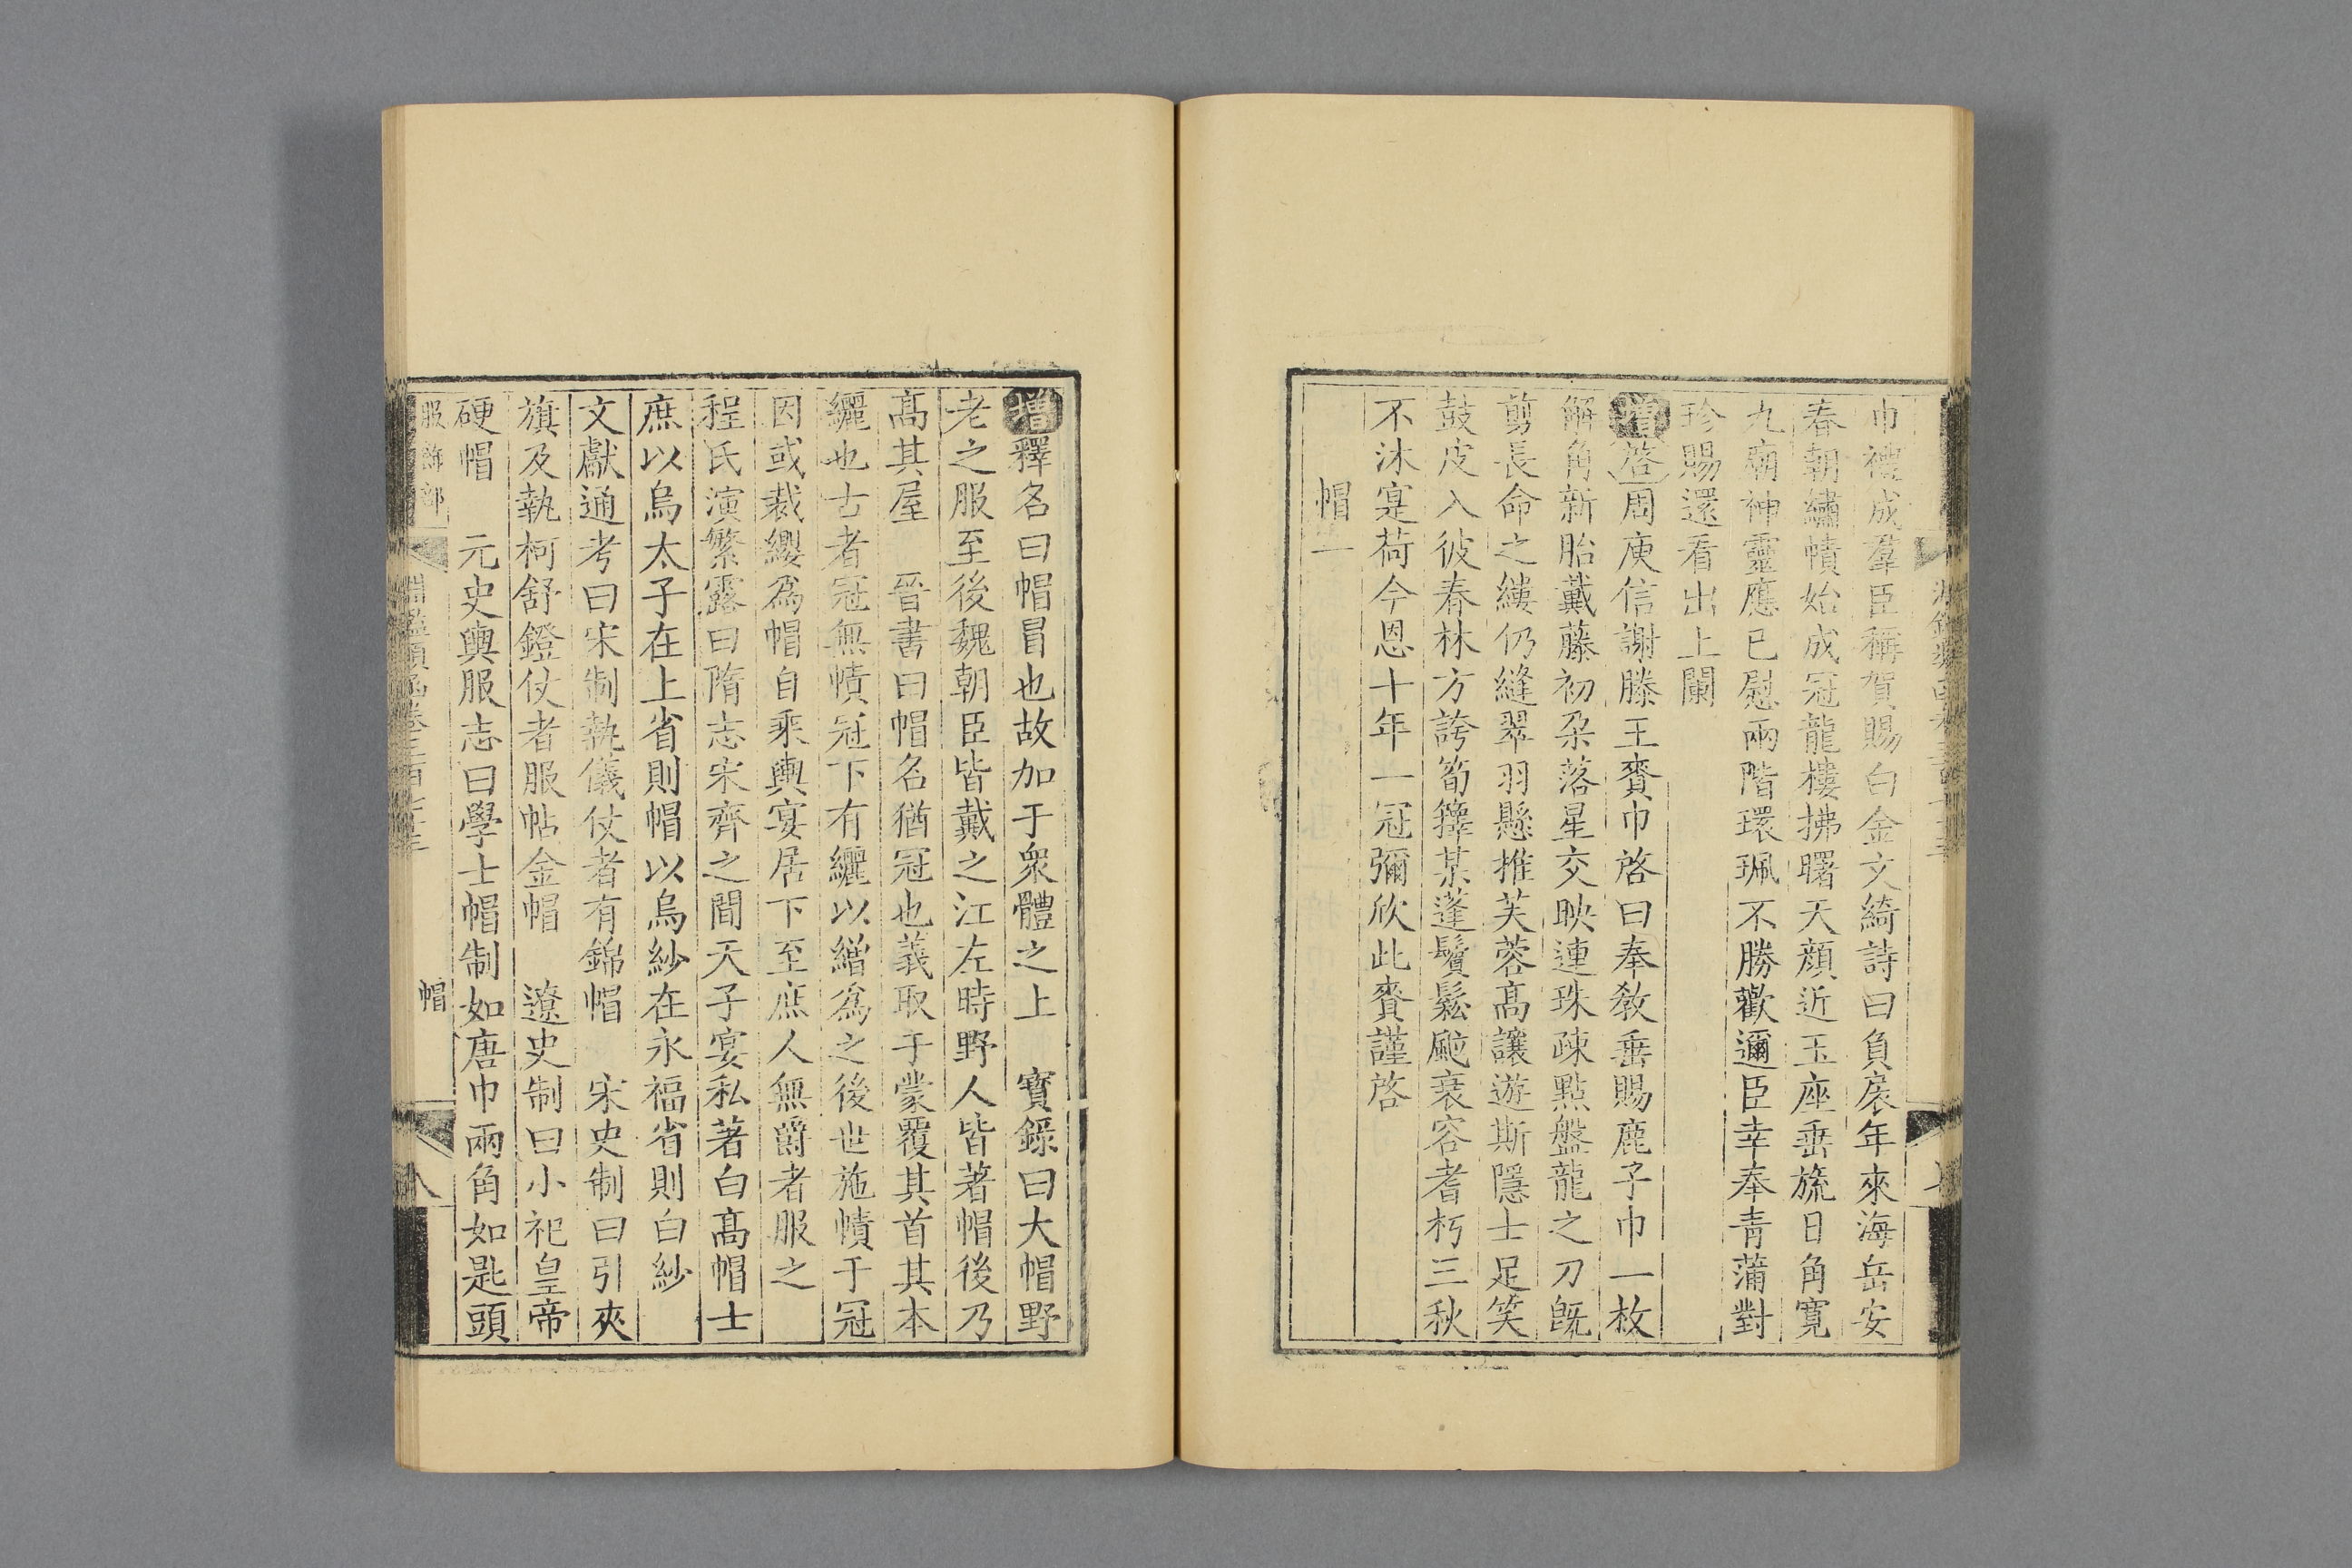 巾禮成羣臣稱賀賜白金文綺詩曰負扆年來海岳安
春朝繡幘始成冠龍樓拂曙天顏近玉座垂旒日角寬
九廟神靈應已慰兩階環珮不勝歡邇臣幸奉青蒲對
珍賜還看出上闌
增啓周庾信謝滕王賚巾啓曰奉敎垂賜鹿子巾一枚
解角新胎戴藤初朶落星交映連珠疎點盤龍之刀旣
剪長命之縷仍縫翠羽懸推芙蓉高讓遊斯隱士足笑
鼓皮入彼春林方誇筍籜某蓬鬢鬆颸衰容耆朽三秋
不沐寔荷今恩十年一冠彌欣此賚謹啓
帽一
增釋名曰帽冒也故加于衆體之上 實錄曰大帽野
老之服至後魏朝臣皆戴之江左時野人皆著帽後乃
髙其屋 晉書曰帽名猶冠也義取于蒙覆其首其本
纚也古者冠無幘冠下有纚以繒爲之後世施幘于冠
因或裁纓爲帽自乘輿宴居下至庶人無爵者服之
程氏演繁露曰隋志宋齊之間天子宴私著白髙帽士
庶以烏太子在上省則帽以烏紗在永福省則白紗
文獻通考曰宋制執儀仗者有錦帽 宋史制曰引夾
旗及執柯舒鐙仗者服帖金帽 遼史制曰小祀皇帝
硬帽 元史輿服志曰學士帽制如唐巾兩角如匙頭
服飾部 淵鑑類函卷三百七十二 帽 八